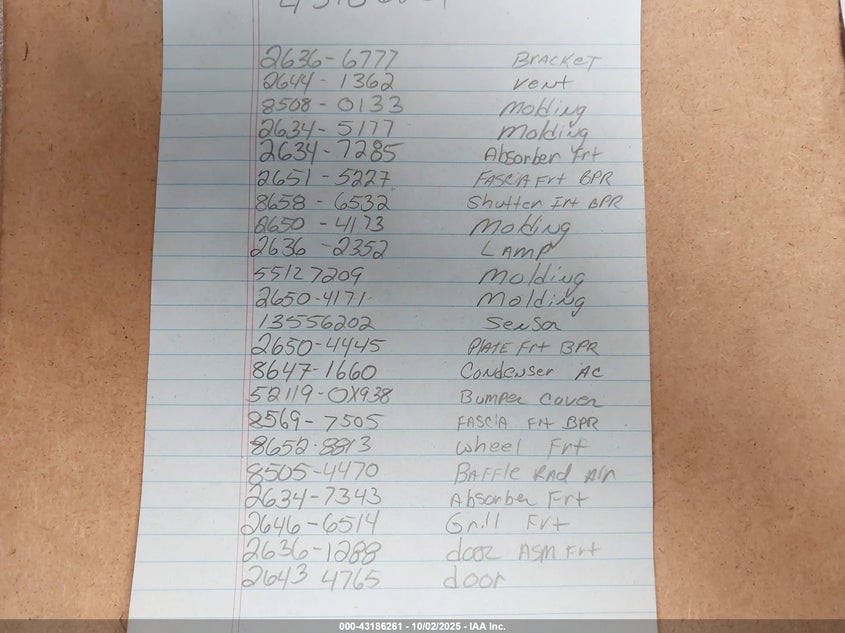 2636-6777 Bracket
2644-1362 vent
8508-0133 Molding
2634-5177 Molding
2634-7285 Absorber Frt
2651-5227 FASCIA Frt BPR
8658-6532 Shutter Frt BPR
2650-4173 Molding
2636-2352 LAMP
55127209 Molding
2650-4171 Molding
13556202 Sensor
2650-4445 PLATE Frt BPR
8647-1660 Condenser AC
52119-0X938 Bumper Cover
8569-7505 FASCIA Frt BPR
8652-8813 wheel Frt
8505-4470 BAFFLE RAd AIR
2634-7343 Absorber Frt
2646-6514 Grill Frt
2636-1288 door ASM Frt
2643 4765 door
000-43186261 - 10/02/2025 - IAA Inc.